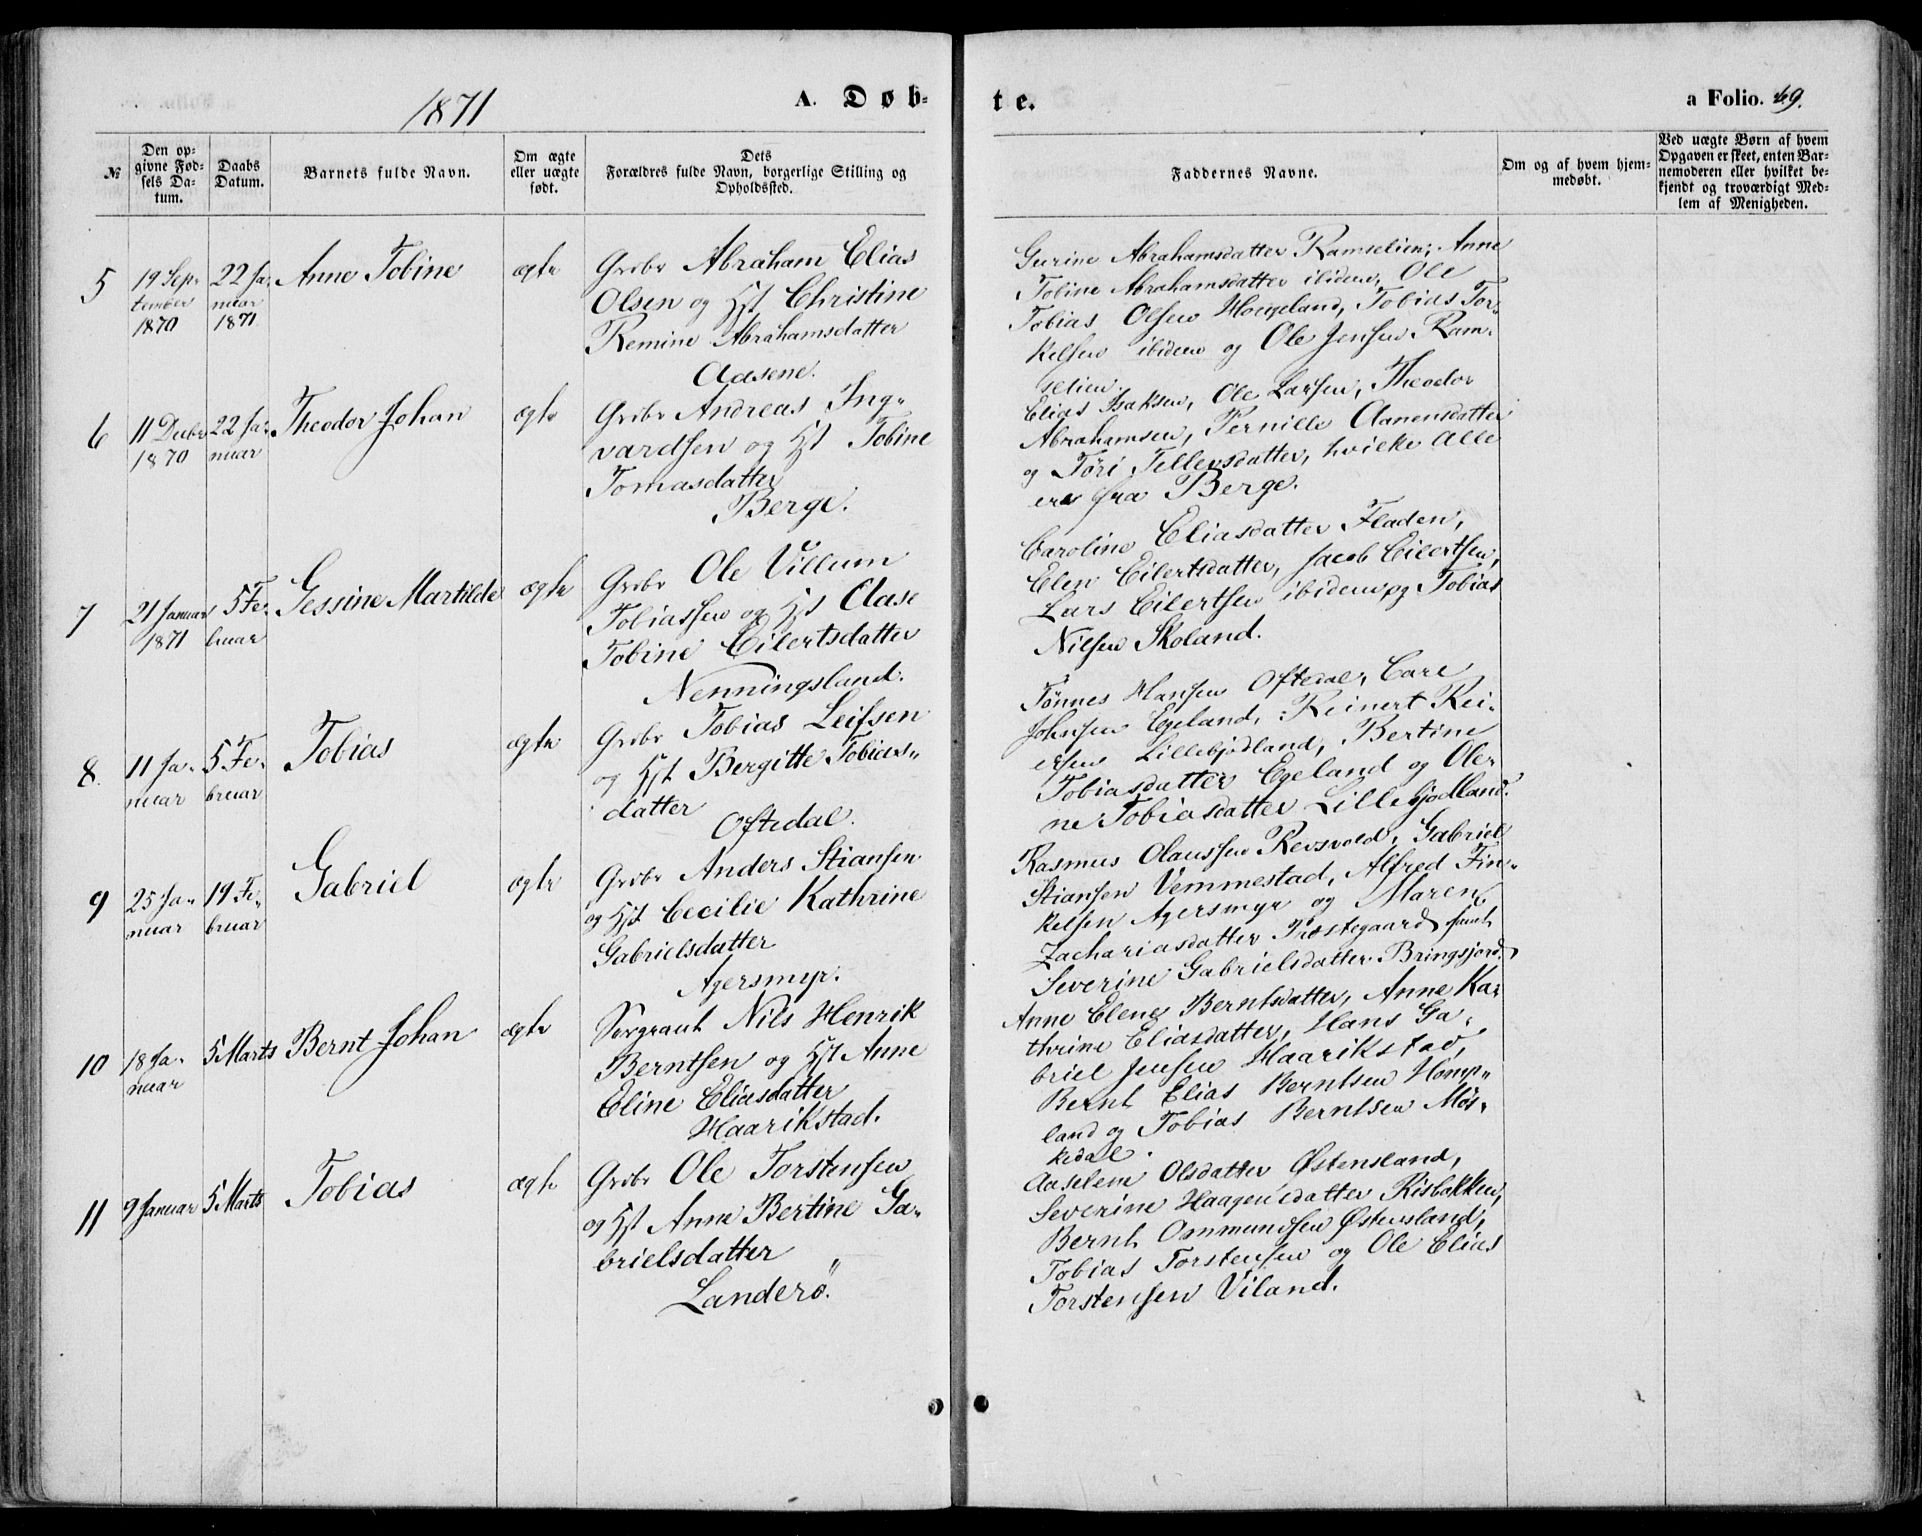 1871
A. Døb-
te.
a Folio. 49.
№
Den op-
givne Fød-
sels Da-
tum.
Daabs
Datum.
Barnets fulde Navn.
Om ægte
eller uægte
født.
Dets
Forældres fulde Navn, borgerlige Stilling og
Opholdssted.
Faddernes Navne.
Om og af hvem hjem-
medøbt.
Ved uægte Børn af hvem
Opgaven er skeet, enten Bar-
nemoderen eller hvilket be-
kjendt og troværdigt Med-
lem af Menigheden.
5
19 Sep-
tember
1870
22 Ja-
nuar
1871
Anne Tobine
ægte
Grdbr Abraham Elias
Olsen og Hst Christine
Remine Abrahamsdatter
Aasene.
Gurine Abrahamsdatter Ramselien, Anne
Tobine Abrahamsdatter ibidem, Ole
Tobias Olsen Hougeland, Tobias Tor-
kelsen ibidem og Ole Jensen Ram-
selien.
6
11 Decbr
1870
22 Ja-
nuar
Theodor Johan
ægte
Grdbr Andreas Ing-
vardsen og Hst Tobine
Tomasdatter
Berge.
Elias Isaksen, Ole Larsen, Theodor
Abrahamsen, Pernille Aanensdatter
og Töri Tellevsdatter, hvilke alle
ere fra Berge.
7
21 Januar
1871
5 Fe-
bruar
Gessine Martilde
ægte
Grdbr Ole Villum
Tobiassen og Hst Aase
Tobine Eilertsdatter
Nenningsland.
Caroline Eliasdatter Fladen,
Elen Eilertsdatter, Jacob Eilertsen,
Lars Eilertsen ibidem og Tobias
Nilsen Skoland.
8.
11 Ja-
nuar
5 Fe-
bruar
Tobias
ægte
Grdbr Tobias Leifsen
og Hst Bergitte Tobias-
datter
Oftedal.
Tønnes Hansen Oftedal, Carl
Johnsen Egeland, Reinert Rei-
ersen Lillebjodland, Bertine
Tobiasdatter Egeland og Ole-
ne Tobiasdatter Lillebjodland.
9
25 Ja-
nuar
19 Fe-
bruar
Gabriel
ægte
Grdbr Anders Stiansen
og Hst Cecilie Kathrine
Gabrielsdatter
Agersmyr.
Rasmus Olaussen Revsvold, Gabriel
Stiansen Vemmestad, Alfred Fin-
kelsen Agersmyr og Maren
Zachariasdatter Præstegaard samt
Severine Gabrielsdatter Bringsjord.
10
18 Ja-
nuar
5 Marts
Bernt Johan
ægte
Sergeant Nils Henrik
Berntsen og Hst Anne
Eline Eliasdatter
Haarikstad.
Anne Elene Berntsdatter, Anne Ka-
thrine Eliasdatter, Hans Ga-
briel Jensen Haarikstad,
Bernt Elias Berntsen Homp-
land og Tobias Berntsen Møs-
kedal.
11
9 Januar
5 Marts
Tobias
ægte
Grdbr Ole Torstensen
og Hst Anne Bertine Ga-
brielsdatter
Landerö.
Aaselem Olsdatter Østensland,
Severine Haagensdatter Risbakken,
Bernt Ommundsen Østensland,
Tobias Torstensen og Ole Elias
Torstensen Viland.